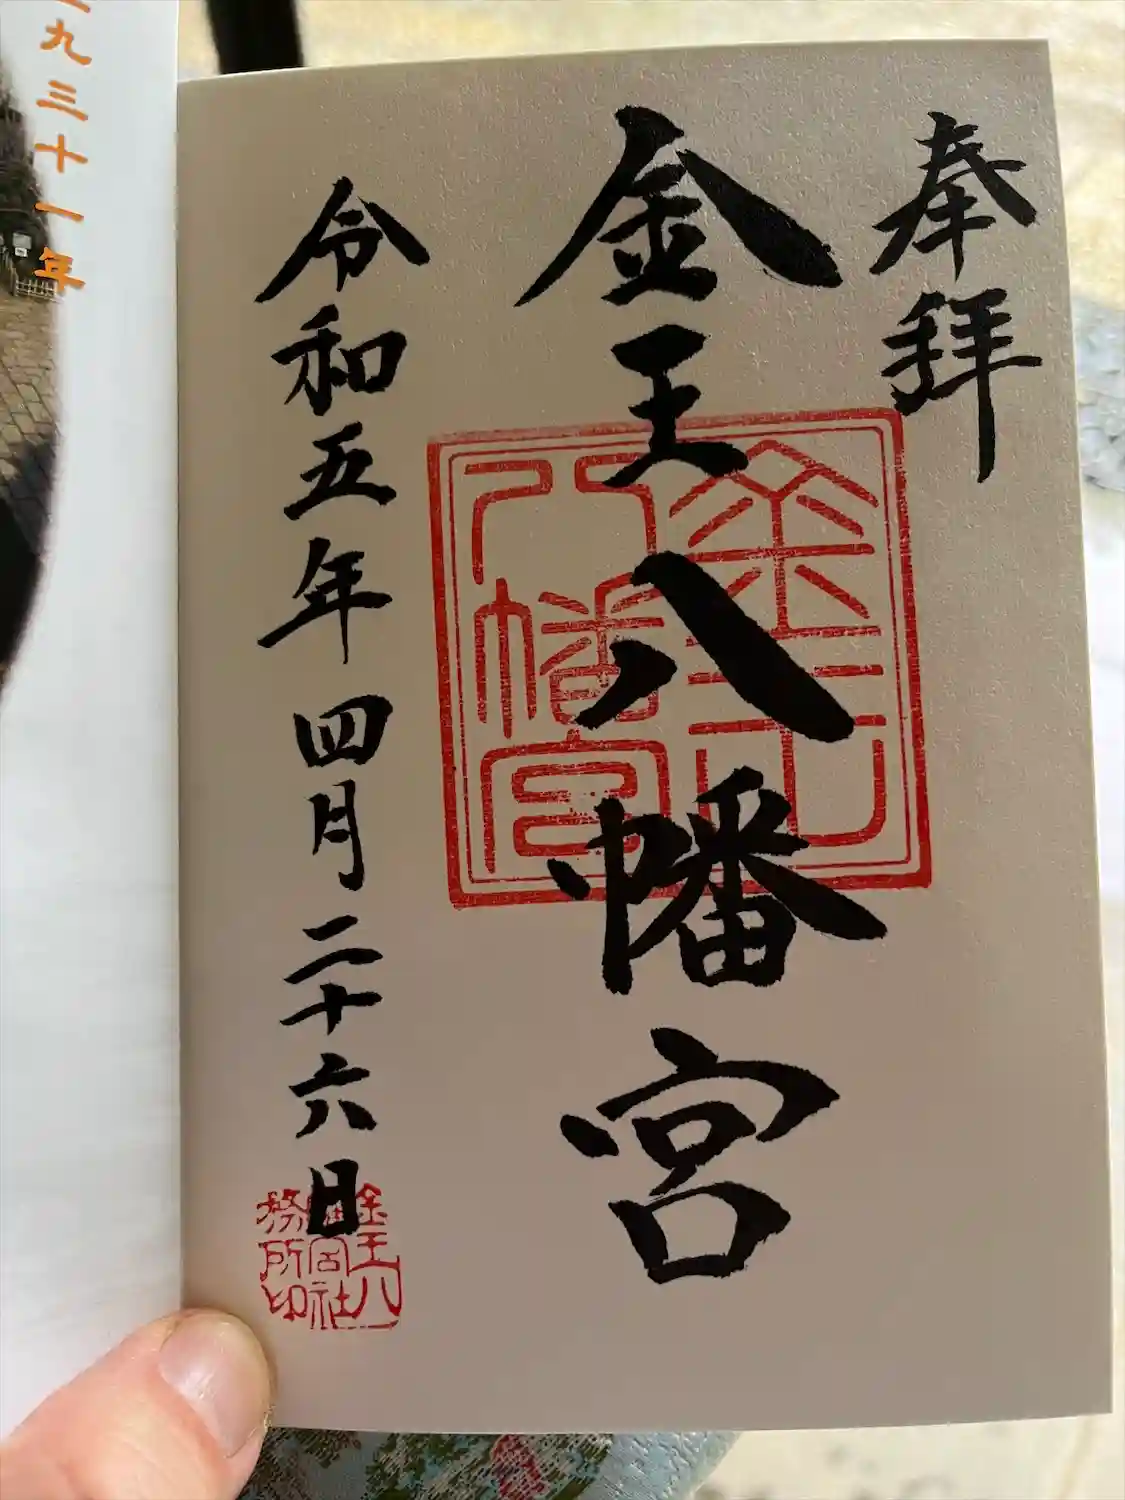 奉拝
金王八幡宮
金王八幡宮
令和五年四月二十六日
金王八幡宮社務所印
九三十一年